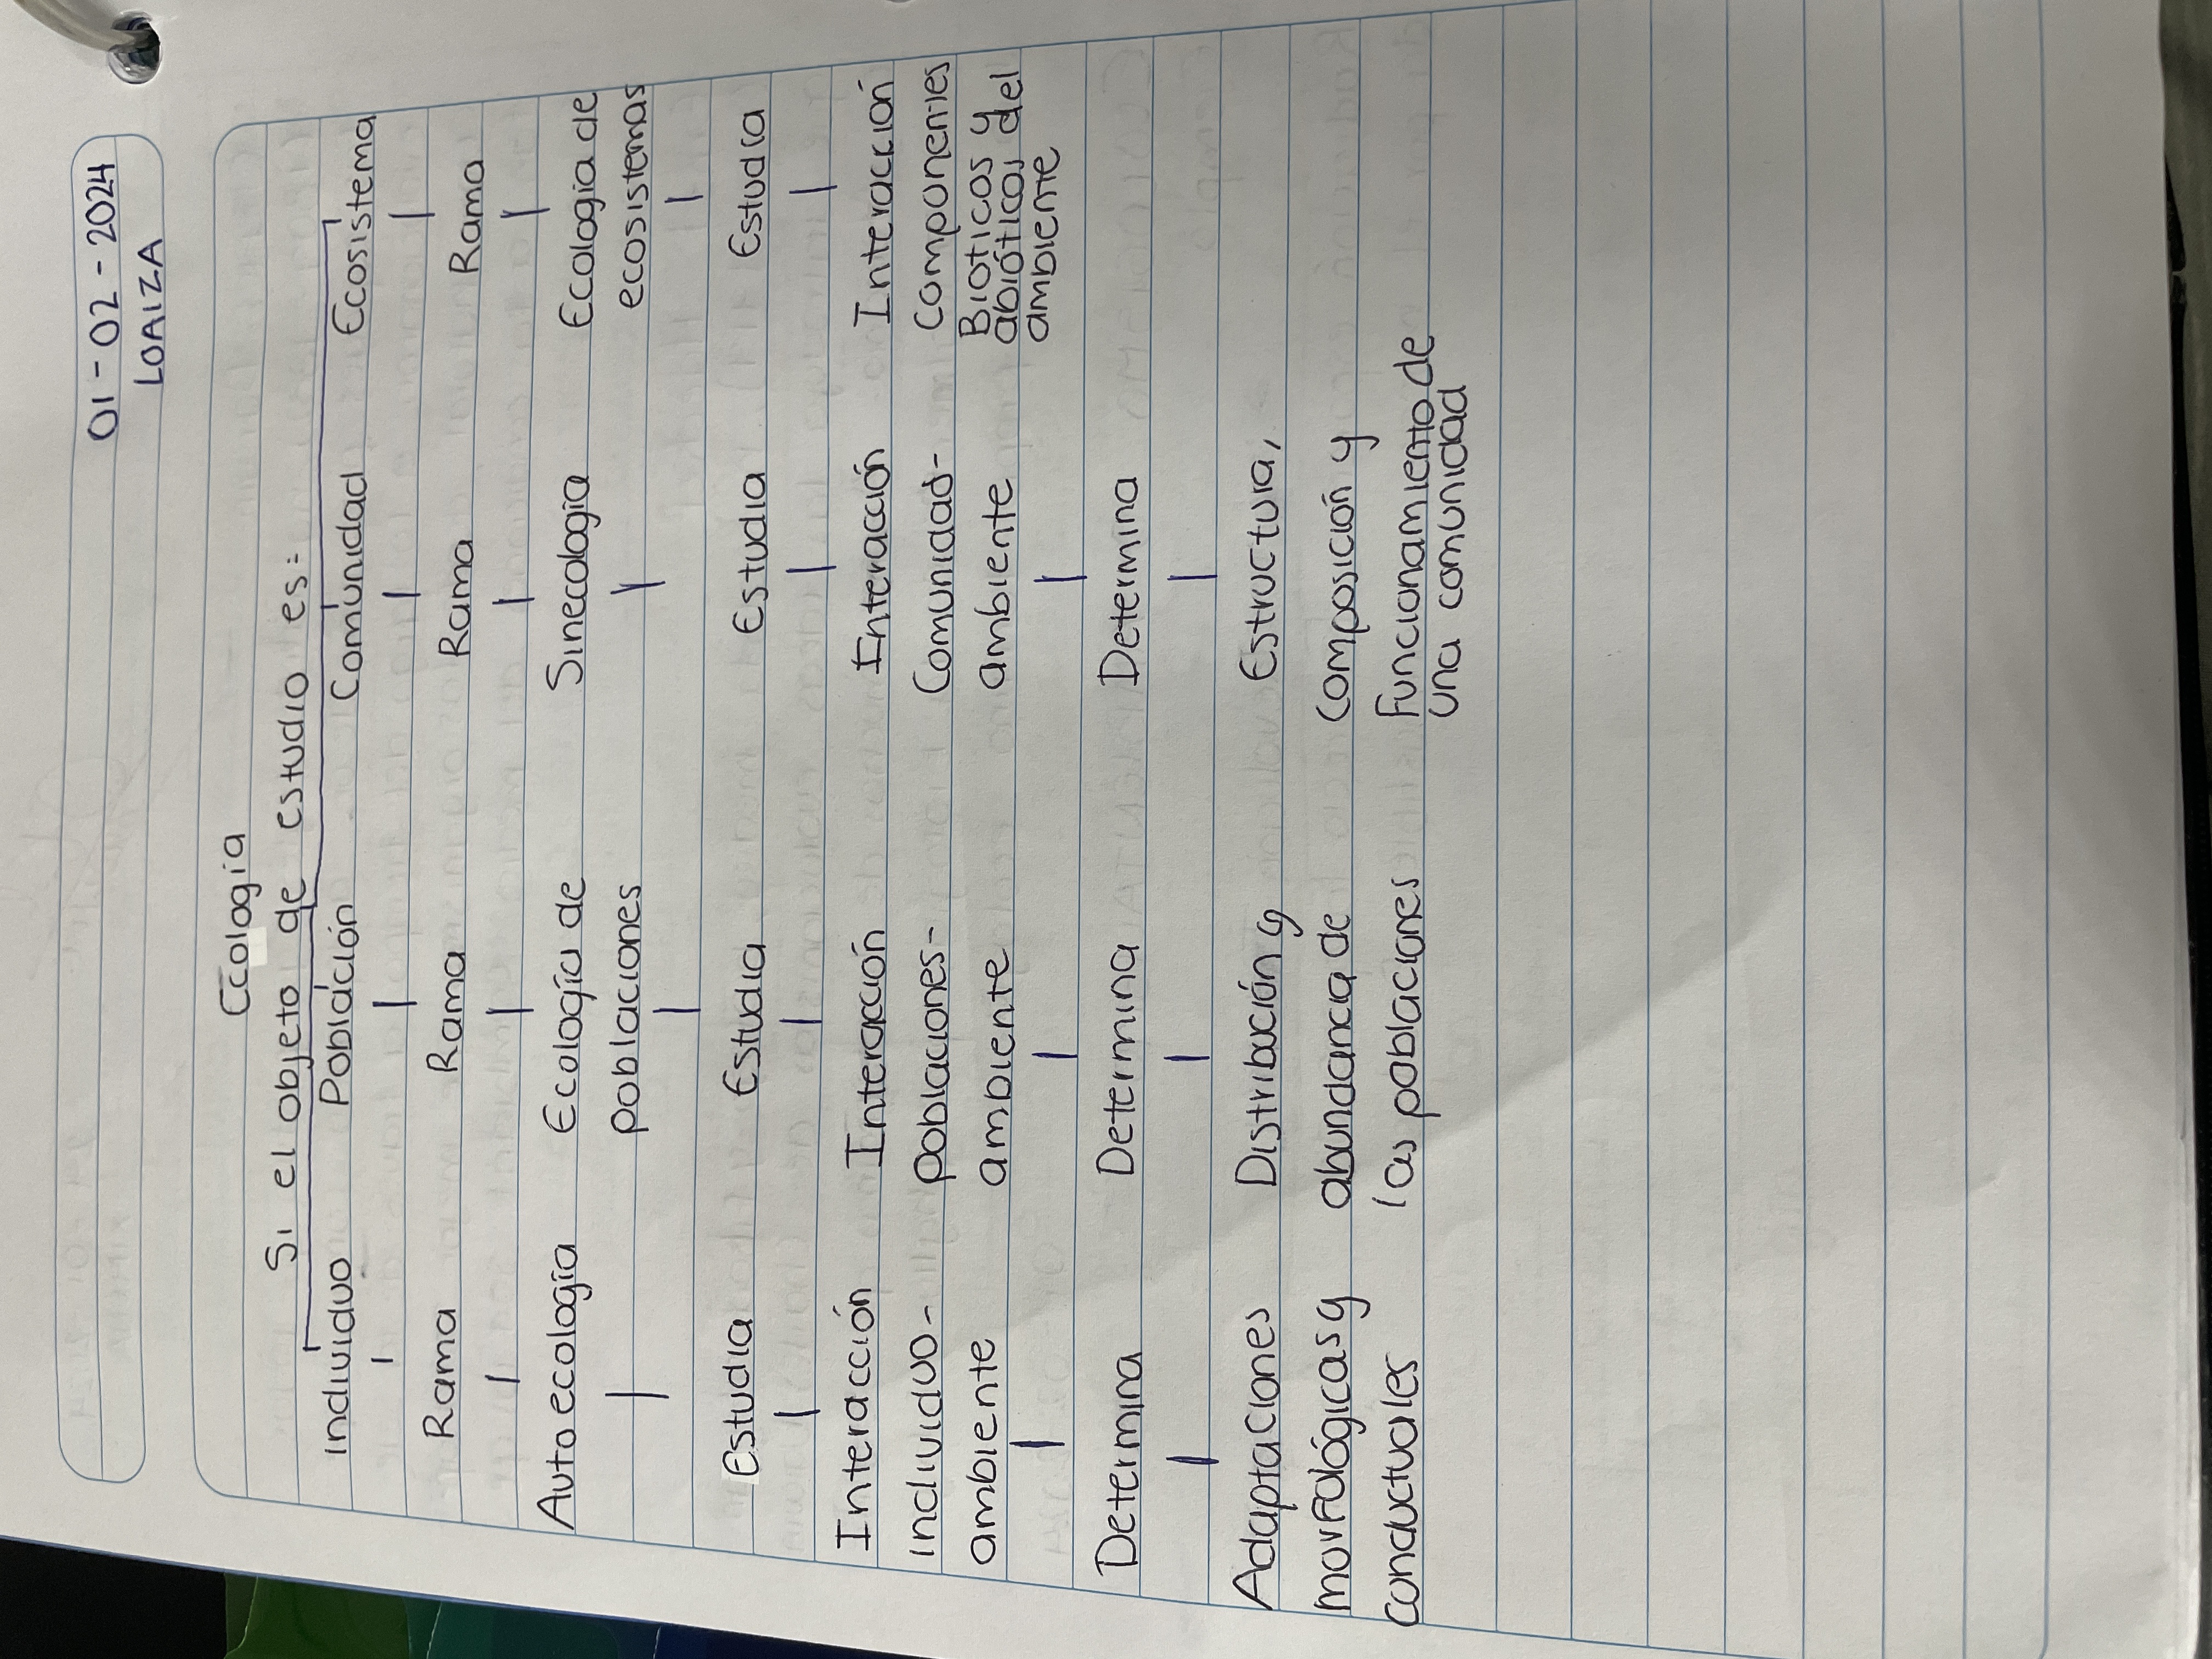 01-02-2024
LOAIZA
Ecología
Si el objeto de estudio es:
Individuo Población Comunidad Ecosistema
Rama Rama Rama Rama
Autoecología Ecología de Sinecología Ecología de
poblaciones ecosistemas
Estudia Estudia Estudia Estudia
Interacción Interacción Interacción Interacción
individuo- poblaciones- Comunidad- componentes
ambiente ambiente ambiente Bioticos y
abióticos del
ambiente
Determina Determina Determina
Adaptaciones Distribución y Estructura,
morfológicas y abundancia de composición y
conductuales las poblaciones Funcionamiento de
una comunidad